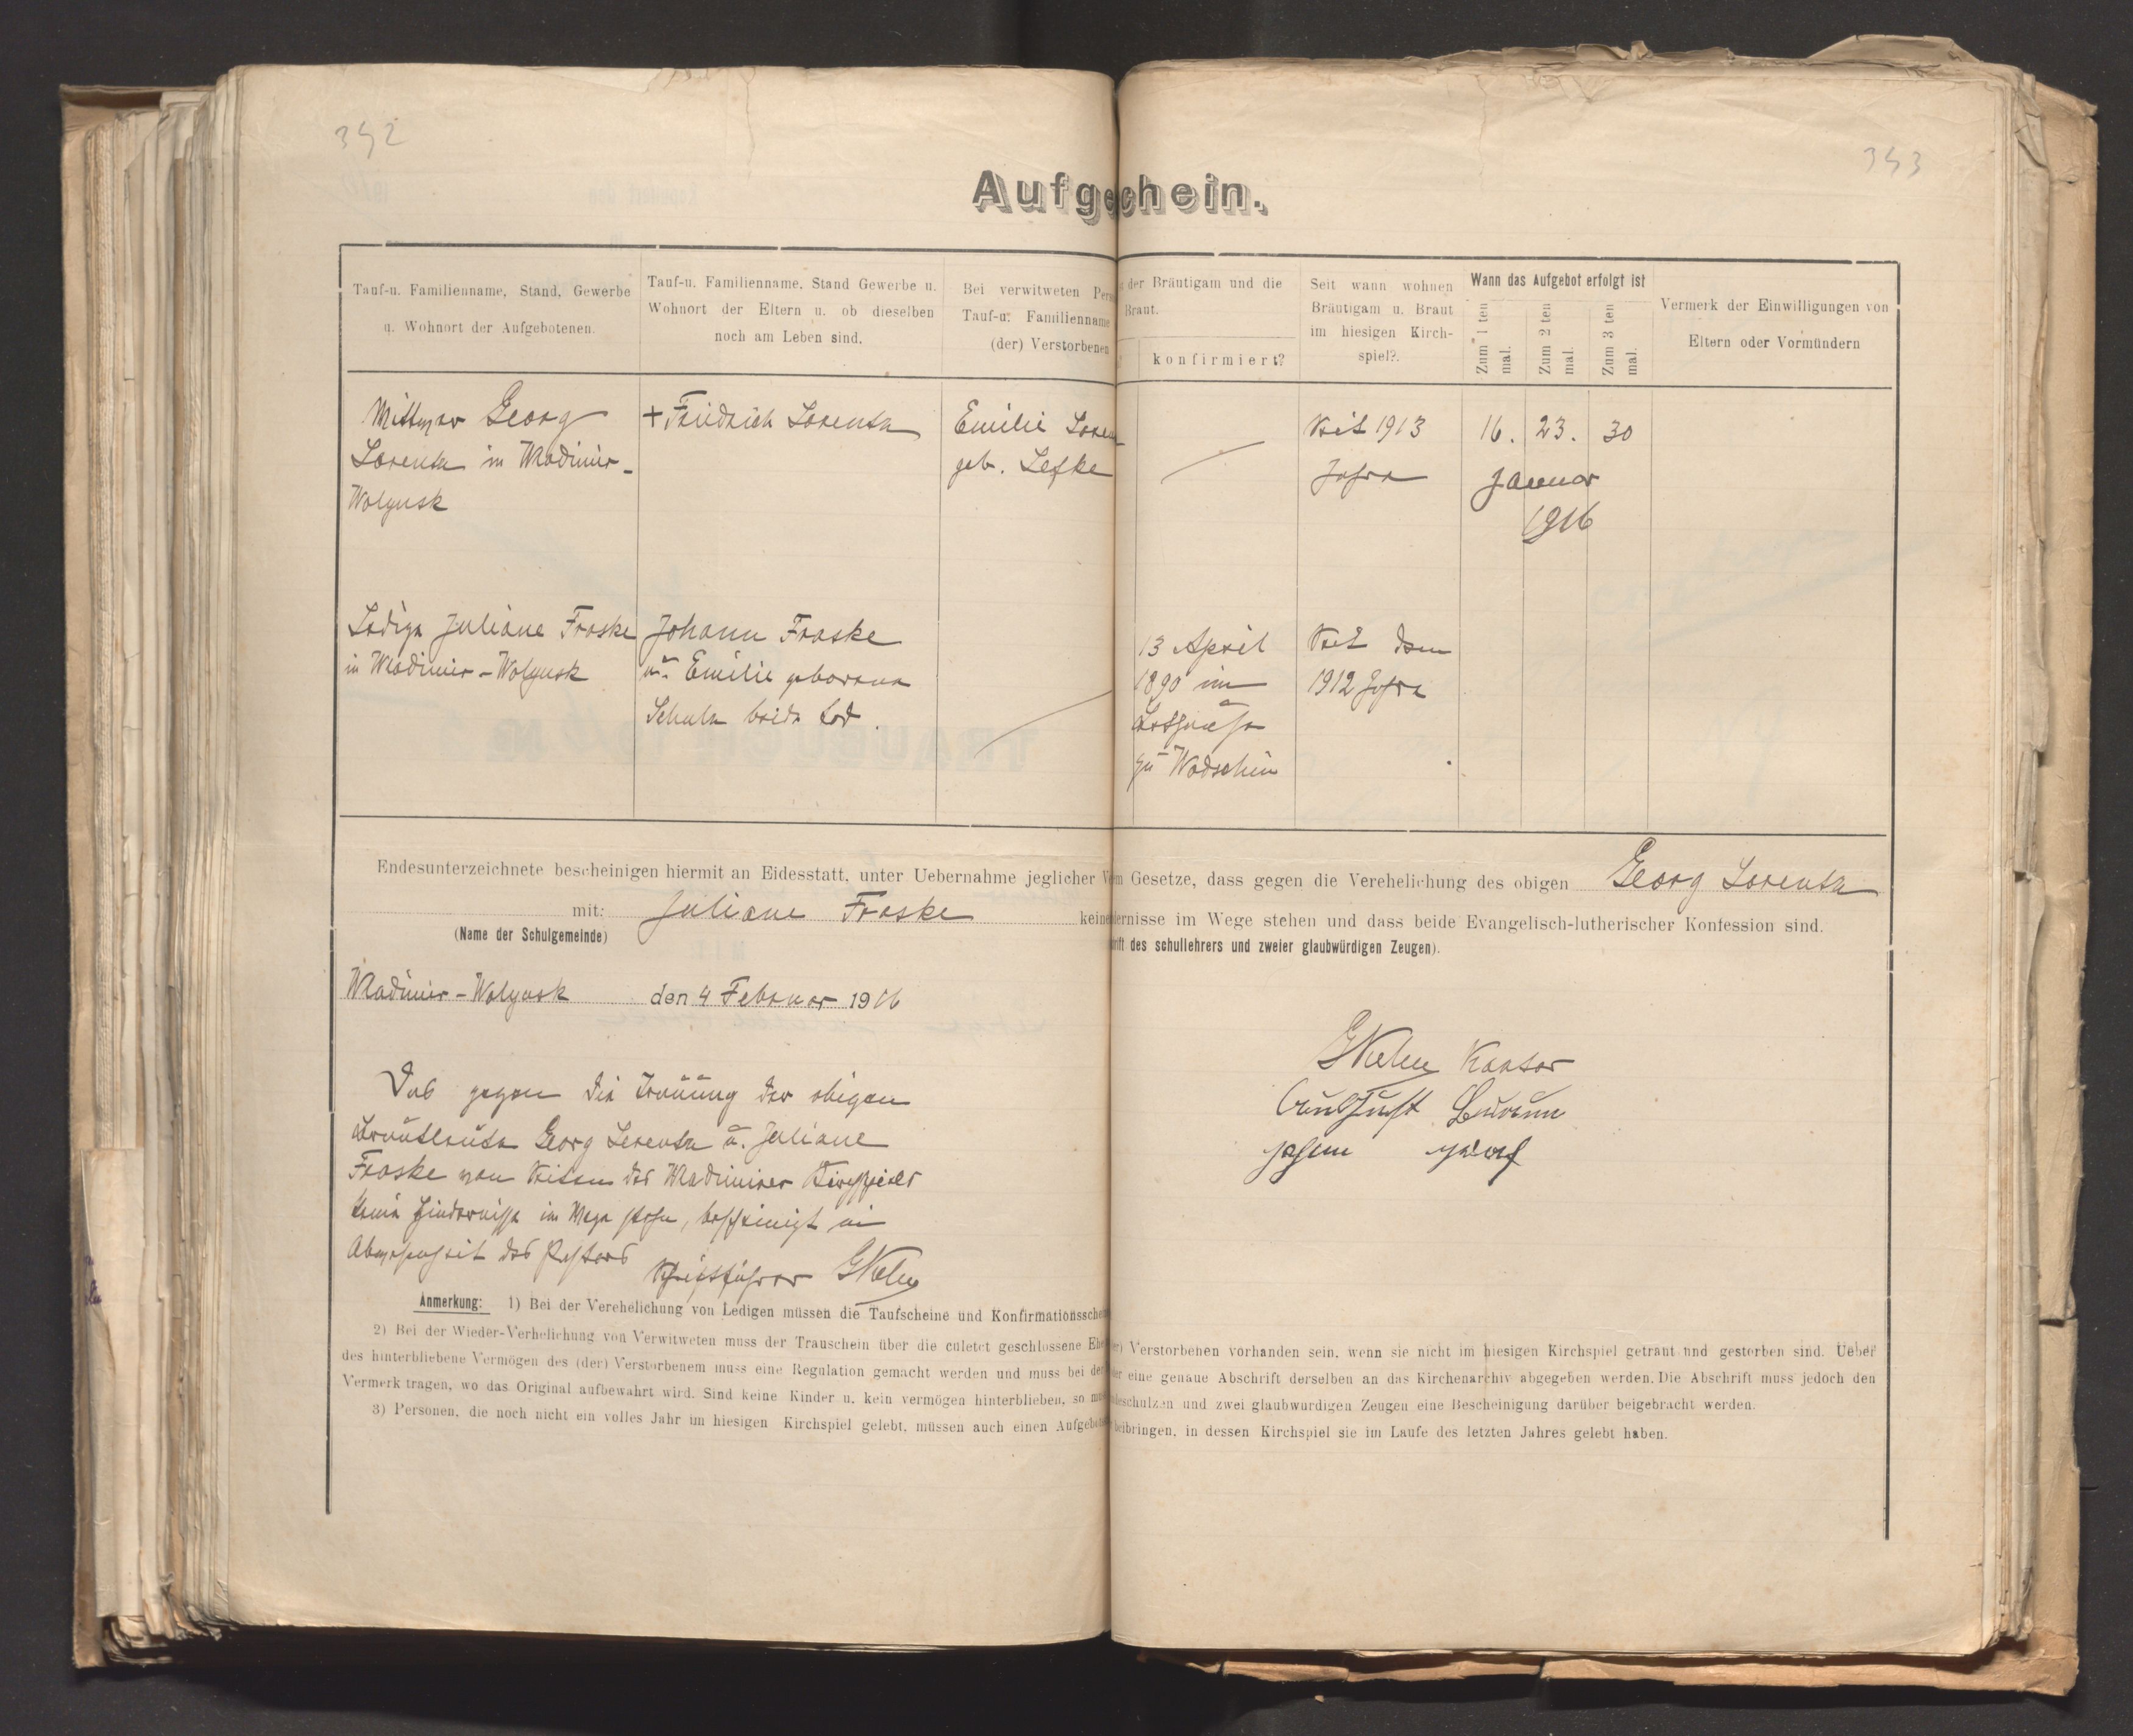 392
393
Aufge chein.
Tauf-u. Familienname, Stand, Gewerbe
u. Wohnort der Aufgebotenen.
Tauf-u. Familienname, Stand Gewerbe u.
Wohnort der Eltern u. ob dieselben
noch am Leben sind.
Bei verwitweten Pers
Tauf-u. Familienname
(der) Verstorbenen
der Bräutigam und die
Braut.
konfirmiert?
Seit wann wohnen
Bräutigam u. Braut
im hiesigen Kirch-
spiel?.
Wann das Aufgebot erfolgt ist
Zum 1 ten mal.
Zum 2 ten mal.
Zum 3 ten mal.
Vermerk der Einwilligungen von
Eltern oder Vormündern
Wittwer Georg
Lorentz in Wladimir-
Wolynsk
+ Friedrich Lorentz
Emilie Loren
geb. Lefke
Seit 1913
Jahre
16. 23. 30
Januar
1916
Ledige Juliane Fraske
in Wladimir-Wolynsk
Johann Fraske
u. Emilie geborene
Schulz beide tod.
13 April
1890 im
Bethause
zu Wodschin
Seit dem
1912 Jahre
Endesunterzeichnete bescheinigen hiermit an Eidesstatt, unter Uebernahme jeglicher Ve m Gesetze, dass gegen die Verehelichung des obigen Georg Lorentz
mit: Juliane Fraske keine iernisse im Wege stehen und dass beide Evangelisch-lutherischer Konfession sind.
(Name der Schulgemeinde)
rift des schullehrers und zweier glaubwürdigen Zeugen).
Wladimir-Wolynsk den 4 Februar 1916
Kantor
August
Das gegen die Trauung der obigen
Brautleute Georg Lorentz u. Juliane
Fraske von Seiten des Wladimirer Kirchspiels
keine Hindernisse im Wege stehen, bescheinigt in
Abwesenheit des Pastors
Schriftführer
Anmerkung: 1) Bei der Verehelichung von Ledigen müssen die Taufscheine und Konfirmationssche
2) Bei der Wieder-Verhelichung von Verwitweten muss der Trauschein über die culetet geschlossene Ehe er) Verstorbenen vorhanden sein, wenn sie nicht im hiesigen Kirchspiel getraut und gestorben sind. Ueber
des hinterbliebene Vermögen des (der) Verstorbenem muss eine Regulation gemacht werden und muss bei der der eine genaue Abschrift derselben an das Kirchenarchiv abgegeben werden. Die Abschrift muss jedoch den
Vermerk tragen, wo das Original aufbewahrt wird. Sind keine Kinder u. kein vermögen hinterblieben, so mu deschulzen und zwei glaubwurdigen Zeugen eine Bescheinigung darüber beigebracht werden.
3) Personen, die noch nicht ein volles Jahr im hiesigen Kirchspiel gelebt, müssen auch einen Aufgebots beibringen, in dessen Kirchspiel sie im Laufe des letzten Jahres gelebt haben.